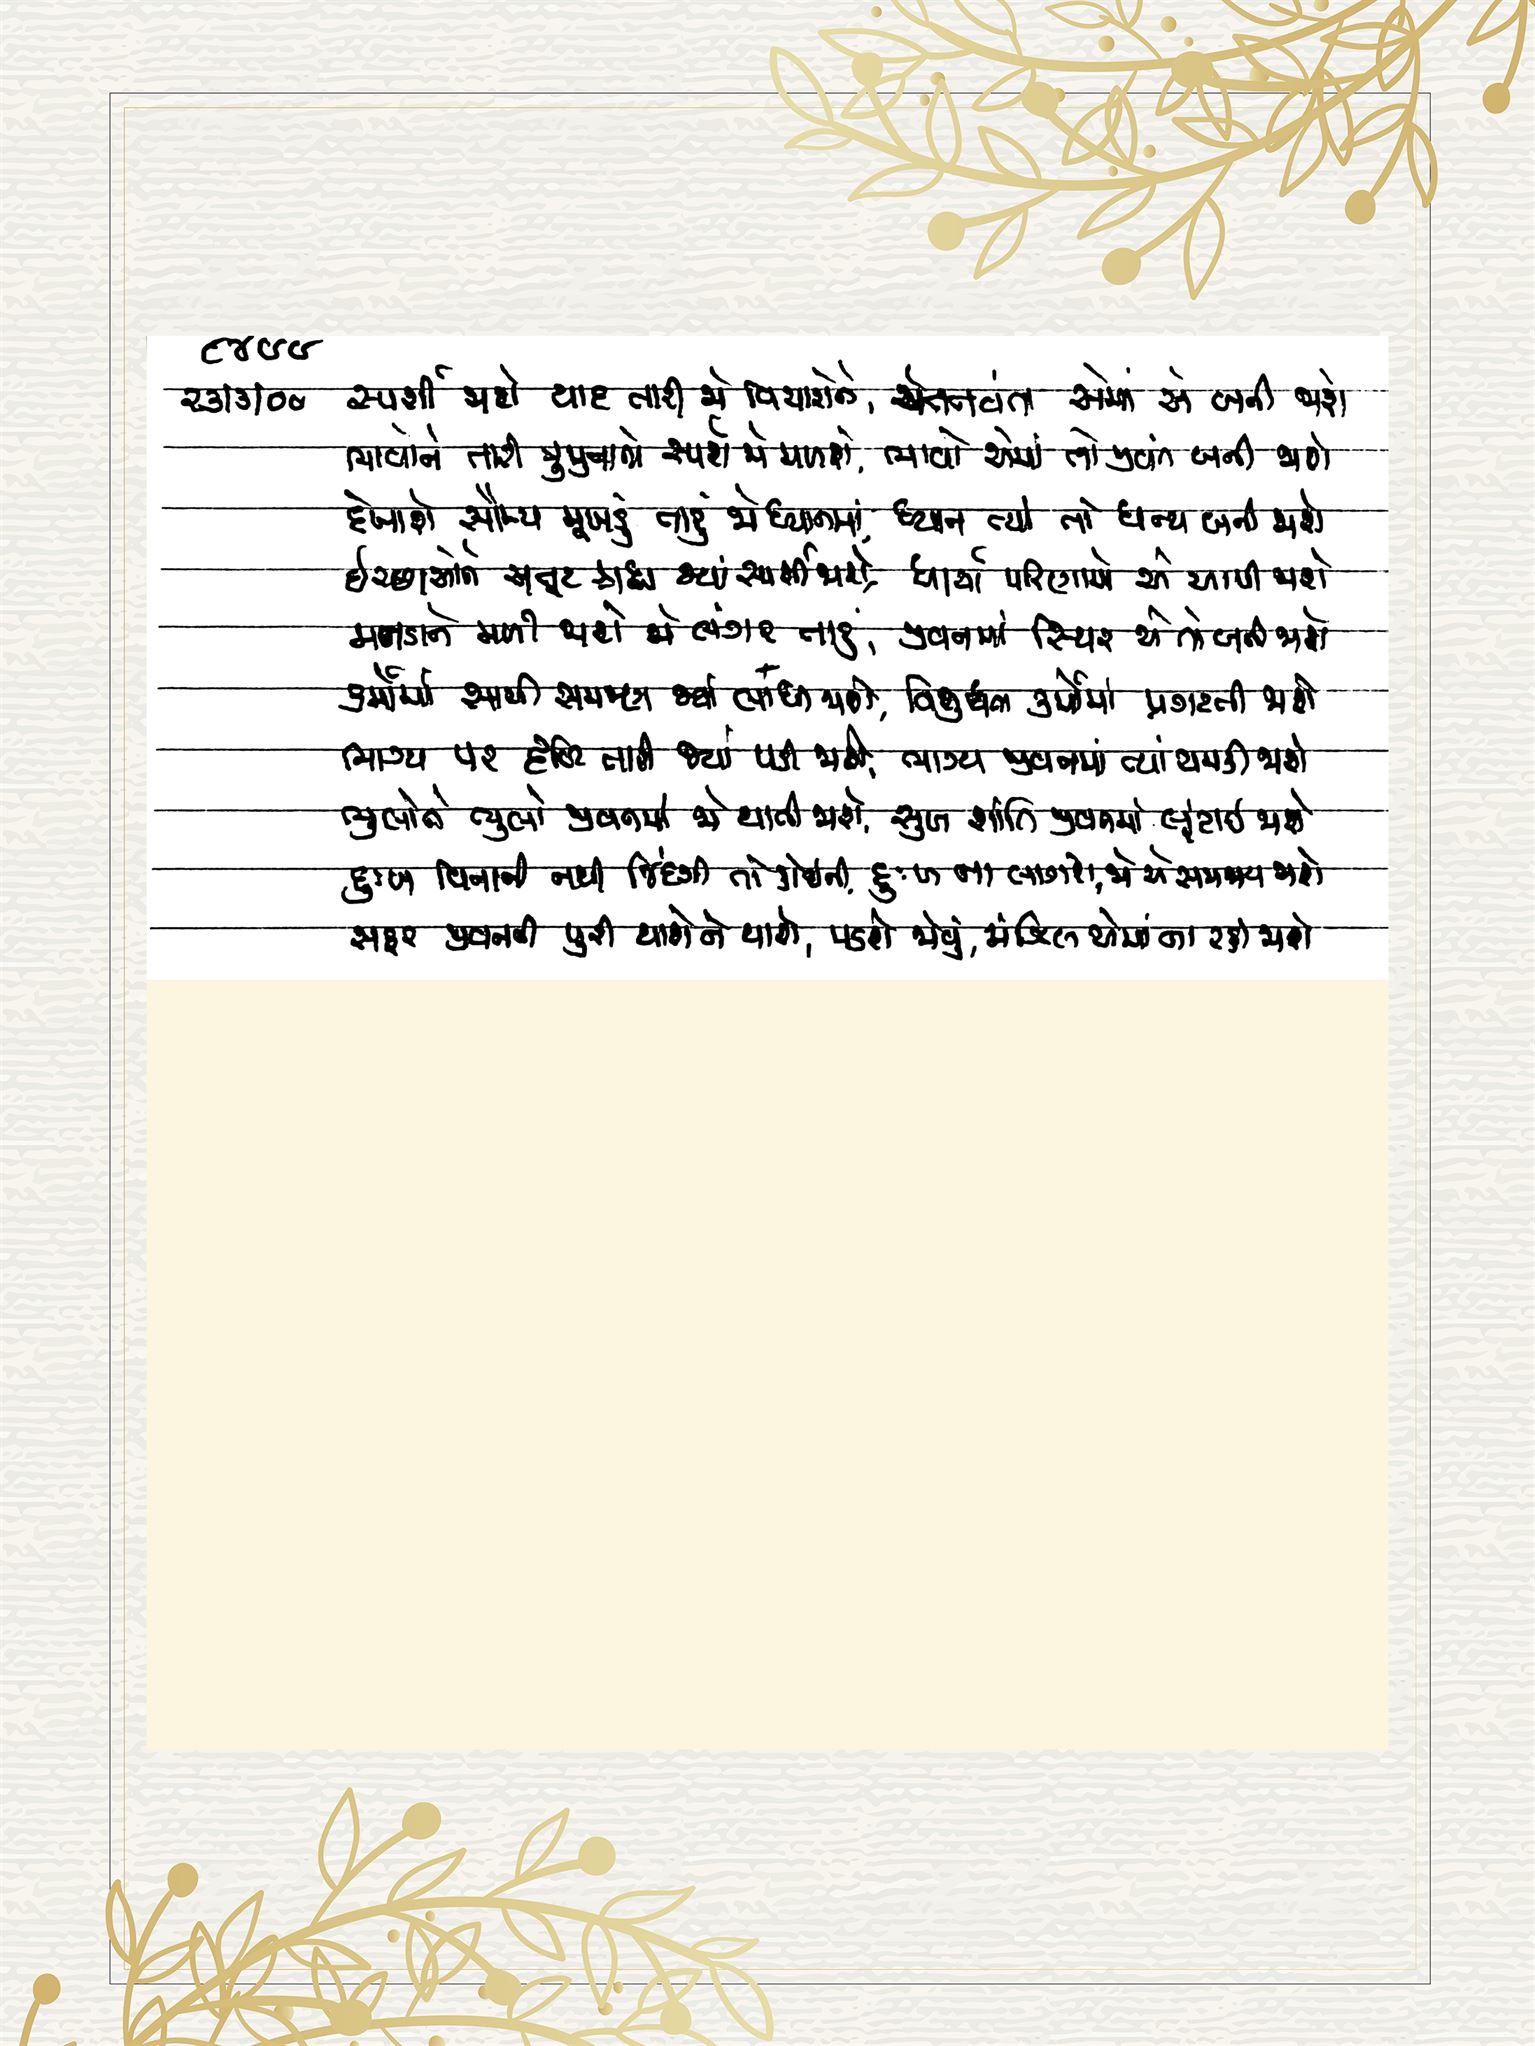 ૮૪૭૭
૨૩/૩/૦૦ સ્પર્શી જાશે યાદ તારી જે વિચારોને, ચેતનવંતા એમાં એ બની જાશે
ભાવોને તારી સ્પર્શ જો મળશે, ભાવો એમાં તો જીવંત બની જાશે
દેખાશે સૌમ્ય મૂખડું તારું જો ધ્યાનમાં, ધ્યાન ત્યાં તો ધન્ય બની જાશે
ઈચ્છાઓને અતૂટ શ્રદ્ધા જ્યાં સ્પર્શી જાશે, ધાર્યા પરિણામો એ આપી જાશે
મનડાને મળી જાશે જો લંગર તારું, જીવનમાં સ્થિર એ તો બની જાશે
કર્મોમાં સાચી સમજણ જ્યાં જાશે, કર્મોમાં પ્રગટતી જાશે
ભાગ્ય પર દૃષ્ટિ તારી જ્યાં પડી જાશે, ભાગ્ય જીવનમાં ત્યાં ચમકી જાશે
ભુલોને ભુલો જીવનમાં જો થાતી જાશે, સુખ શાંતિ જીવનમાં લૂંટાઈ જાશે
દુઃખ વિનાની નથી જિંદગી તો કોઈની, દુઃખ ના લાગશે, જો એ સમજાય જાશે
સફર જીવનની પુરી થાશે ને થાશે, પડશે જોવું, મંઝિલ એમાં ના રહી જાશે